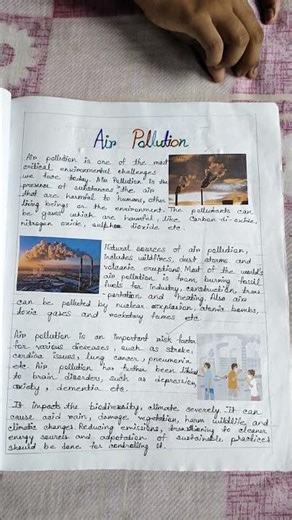 Air Pollution
Air pollution is one of the most
critical environmental challenges
we face today. Air Pollution is the
presence of substances in the air
that are harmful to humans, other
living beings or the environment. The pollutants can
be gases which are harmful, like Carbon di-oxide,
nitrogen oxide, sulphur dioxide etc.
Natural sources of air pollution,
includes wildfires, dust storms and
volcanic eruptions. Most of the world's
air pollution is from burning fossil
fuels for industry, construction, trans
-portation and heating. Also air
can be polluted by nuclear explosion, atomic bombs,
toxic gases and factory fumes etc.
Air pollution is an important risk factor
for various diseases, such as stroke,
cardiac issues, lung cancer, pneumonia
etc. Air pollution has further been linked
to brain disorders, such as depression,
anxiety, dementia etc.
It impacts the biodiversity, climate severely. It can
cause acid rain, damage, vegetation, harm wildlife, and
climatic changes. Reducing emissions, transitioning to cleaner
energy sources and adaptation of sustainable practices
should be done for controlling it.